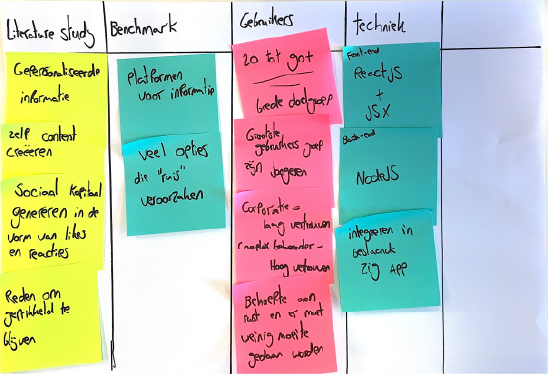 Literature study
Gepersonaliseerde
informatie
zelf content
creëeren
Sociaal kapitaal
genereren in de
vorm van likes
en reacties
Reden om
geprikkeld te
blijven
Benchmark
Platformen
voor informatie
veel opties
die "ruis"
veroorzaken
Gebruikers
20 tot 9nt
brede doelgroep
Grootste
gebruikers groep
zijn jongeren
Corporatie =
laag vertrouwen
Complex beheerder =
Hoog vertrouwen
Behoefte aan
rust en er moet
weinig moeite
gedaan worden
Techniek
Front-end
ReactJS
+
JSX
Back-end
NodeJS
integreren in
bestaande
Zig App